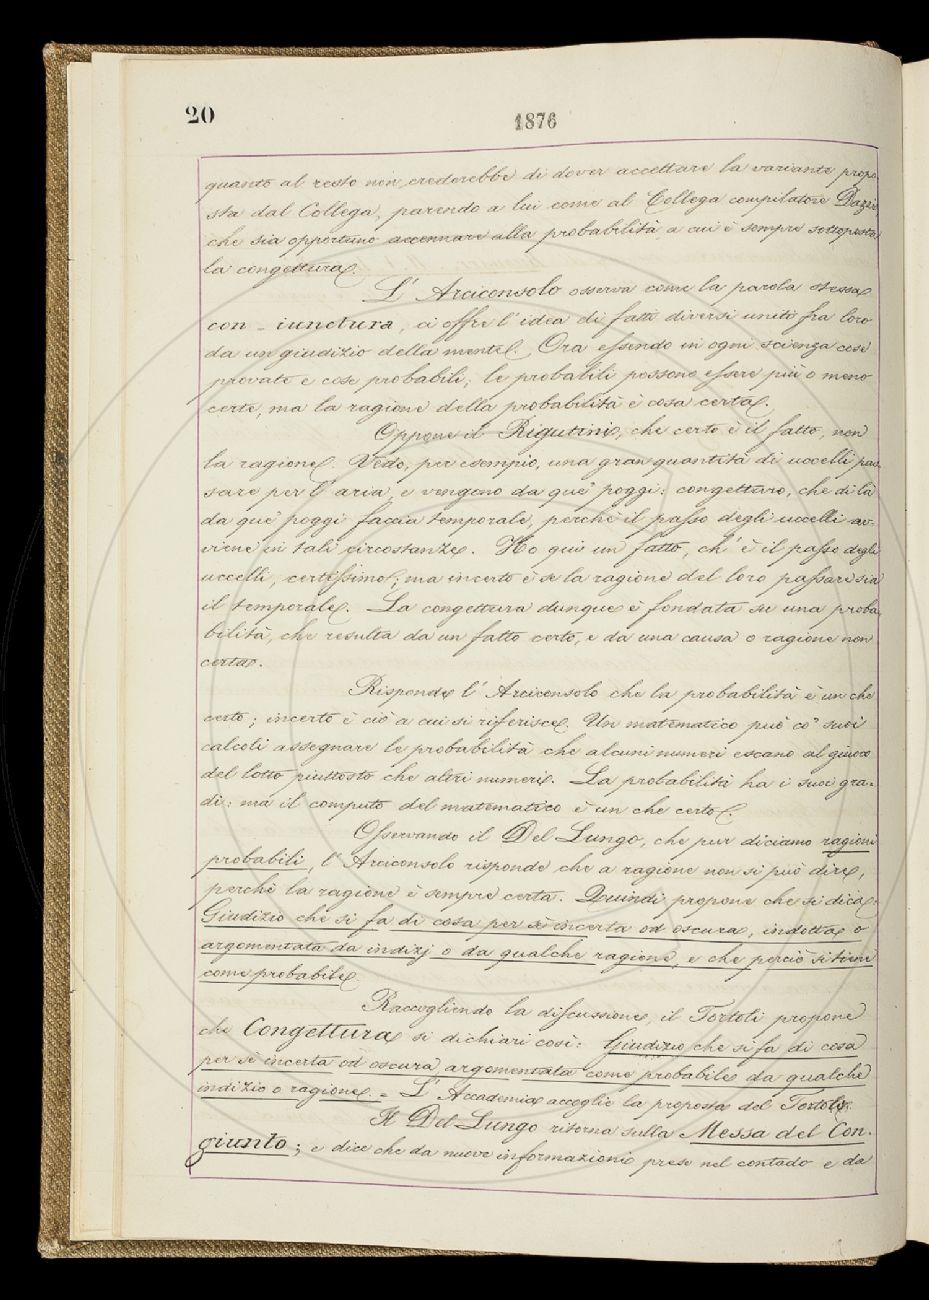 20
1876
quanto al resto non crederebbe di dover accettare la variante propo-
sta dal Collega, parendo a lui come al Collega compilatore Dazzi
che sia opportuno accennare alla probabilità, a cui è sempre sottoposta
la congettura.
L' Arciconsolo osserva come la parola stessa
con-iunctura, ci offre l'idea di fatti diversi uniti fra loro
da un giudizio della mente. Ora essendo in ogni scienza cose
provate e cose probabili; le probabili possono essere più o meno
certe, ma la ragione della probabilità è cosa certa.
Oppone il Rigutini, che certo è il fatto, non
la ragione. Vedo, per esempio, una gran quantità di uccelli pas-
sare per l'aria, e vengono da que' poggi: congetturo, che di là
da que' poggi faccia temporale, perchè il passo degli uccelli av-
viene in tali circostanze. Ho qui un fatto, ch'è il passo degli
uccelli, certissimo; ma incerto è se la ragione del loro passare sia
il temporale. La congettura dunque è fondata su una proba-
bilità, che resulta da un fatto certo, e da una causa o ragione non
certa.
Risponde l'Arciconsolo che la probabilità è un che
certo; incerto è ciò a cui si riferisce. Un matematico può co' suoi
calcoli assegnare le probabilità che alcuni numeri escano al giuoco
del lotto piuttosto che altri numeri. La probabilità ha i suoi gra-
di: ma il computo del matematico è un che certo.
Osservando il Del Lungo, che pur diciamo ragioni
probabili, l'Arciconsolo risponde che a ragione non si può dire,
perchè la ragione è sempre certa. Quindi propone che si dica:
Giudizio che si fa di cosa per sè incerta od oscura, indotta o
argomentata da indizj o da qualche ragione, e che perciò si tiene
come probabile.
Raccogliendo la discussione, il Tortoli propone
che Congettura si dichiari così: Giudizio che si fa di cosa
per sè incerta od oscura, argomentata come probabile da qualche
indizio o ragione. = L' Accademia accoglie la proposta del Tortoli.
Il Del Lungo ritorna sulla Messa del Con-
giunto; e dice che da nuove informazioni prese nel contado e da